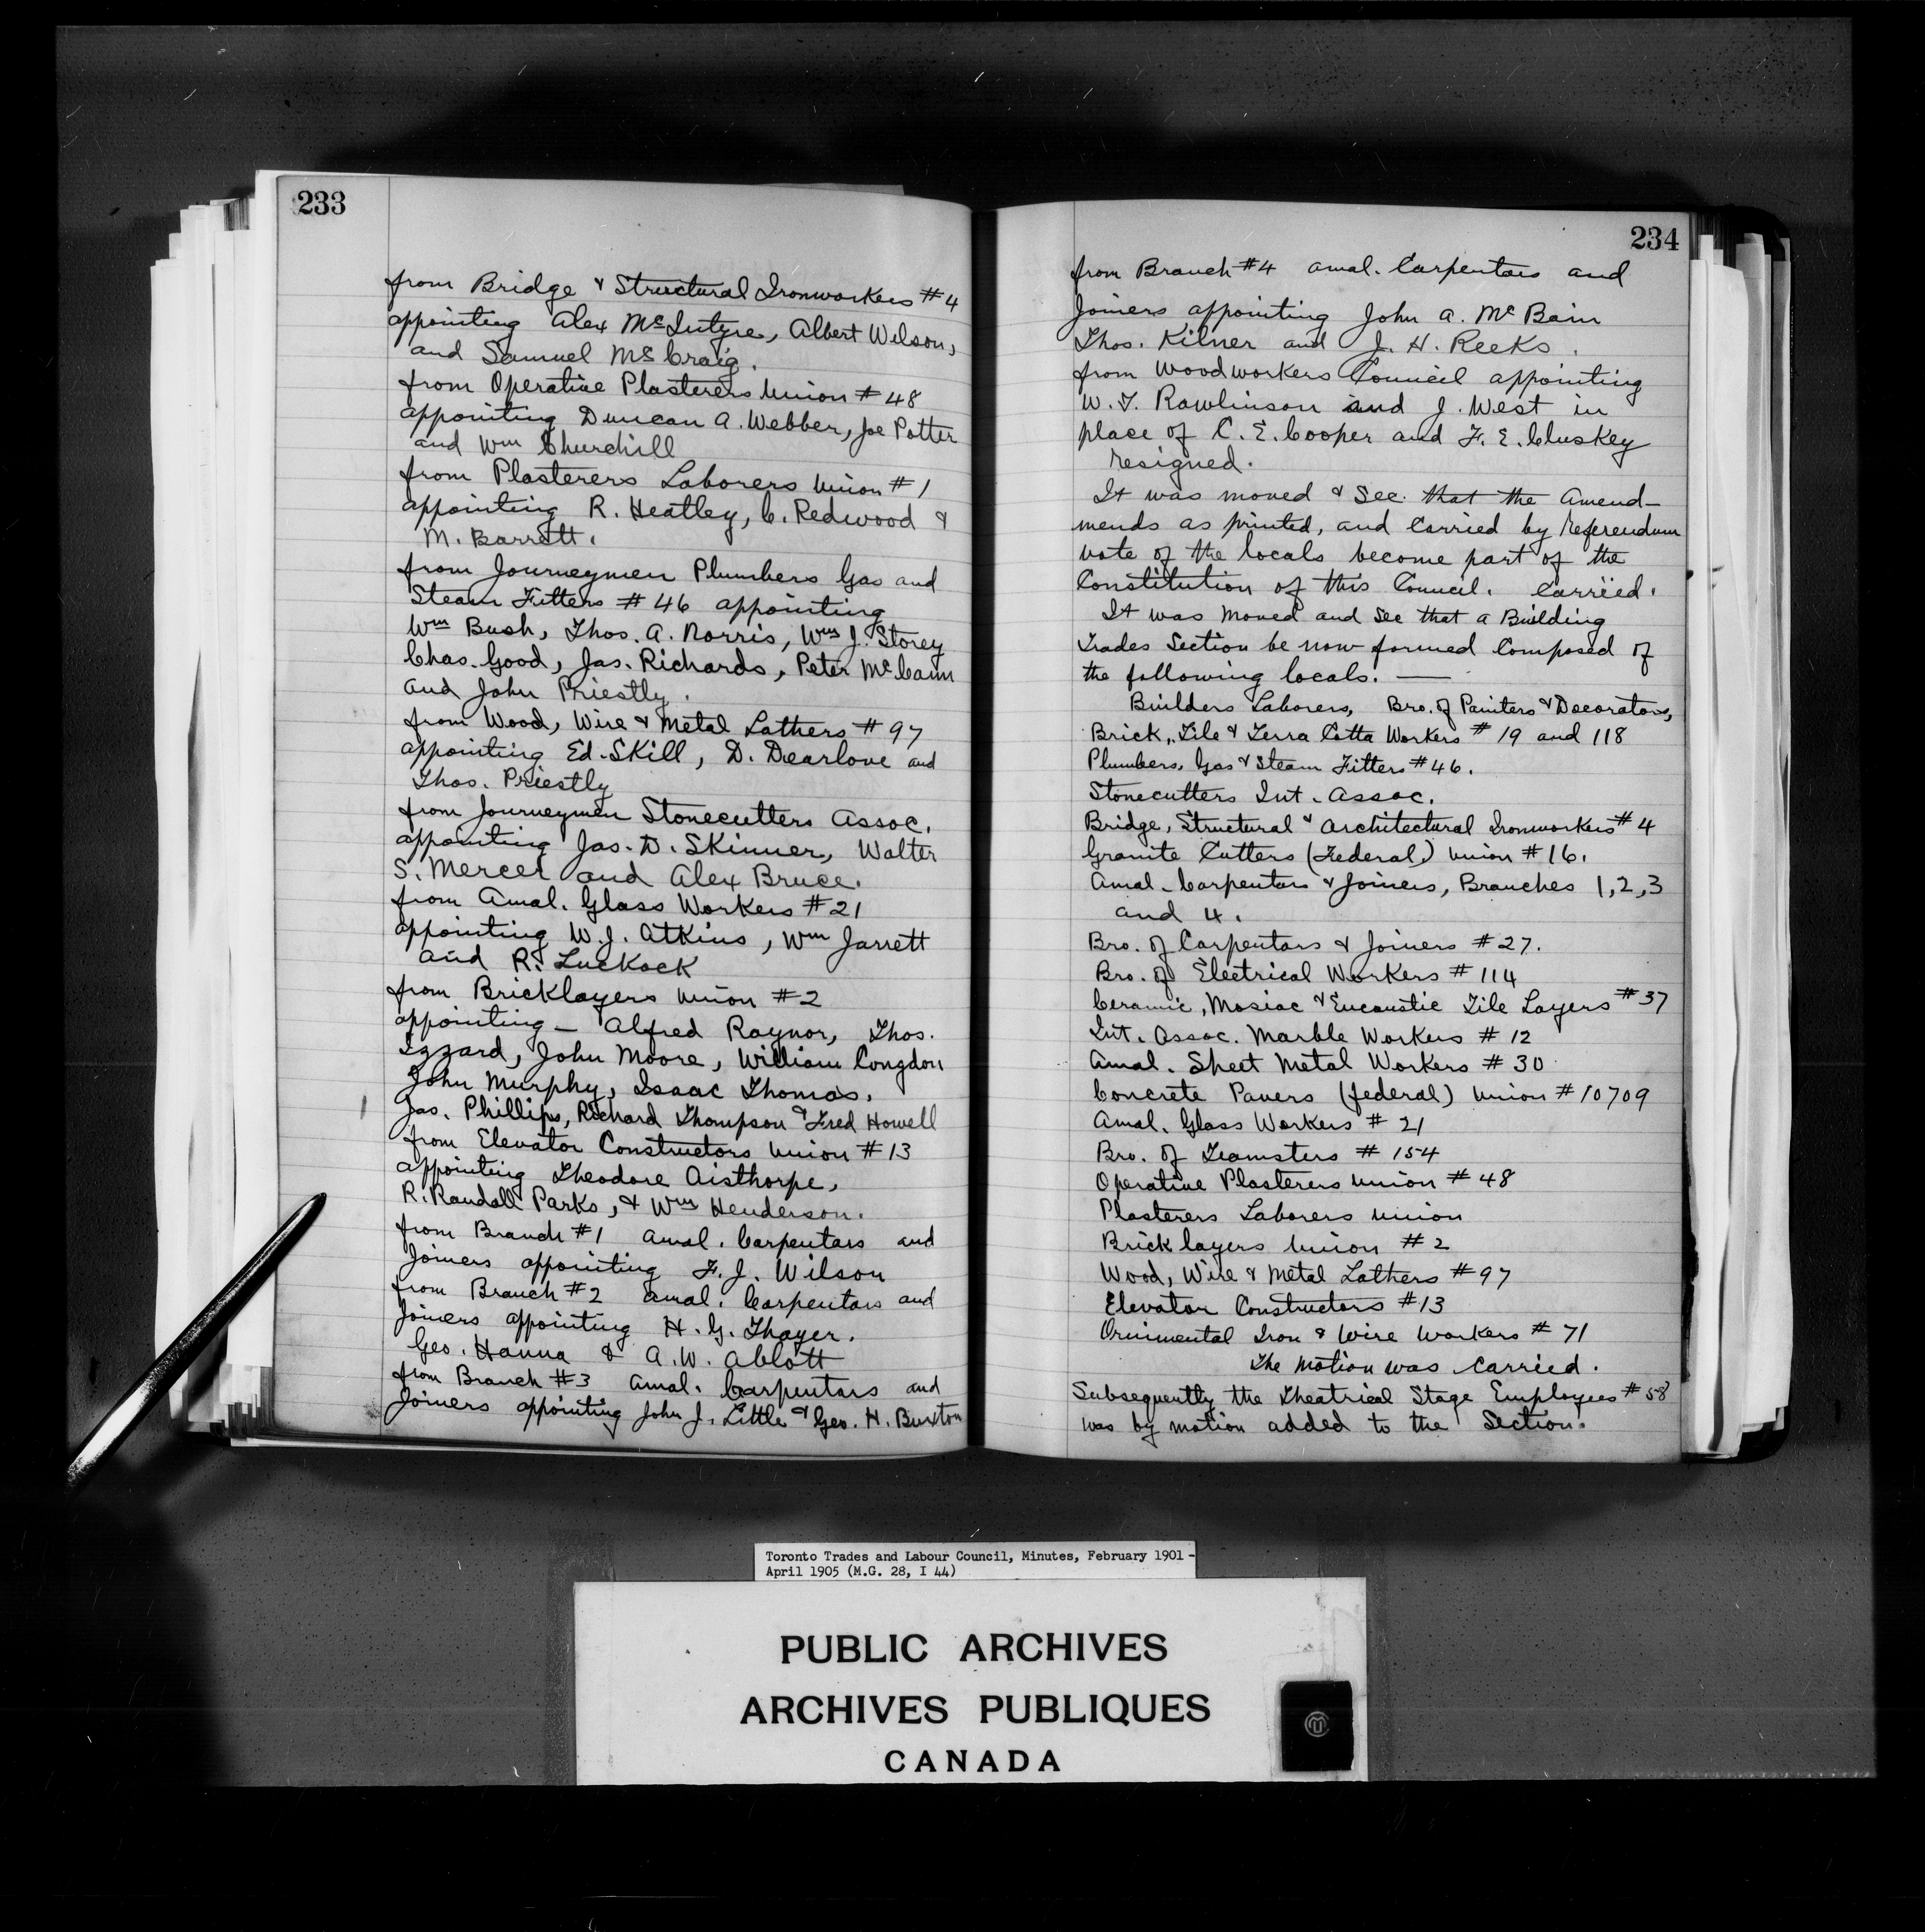 233
from Bridge & Structural Ironworkers #4
appointing Alex McIntyre, Albert Wilson,
and Samuel McCraig.
from Operative Plasterers Union # 48
appointing Duncan A. Webber, Joe Potter
and Wm Churchill
from Plasterers Laborers Union #1
appointing R. Heatley, C. Redwood &
M. Barrett.
from Journeymen Plumbers Gas and
Steam Fitters # 46 appointing
Wm Bush, Thos. A. Norris, Wm J. Storey
Chas. Good, Jas. Richards, Peter McCann
and John Priestly.
from Wood, Wire & Metal Lathers # 97
appointing Ed. Skill, D. Dearlove and
Thos. Priestly
from Journeymen Stonecutters Assoc.
appointing Jas. D. Skinner, Walter
S. Mercer and Alex Bruce.
from Amal. Glass Workers #21
appointing W.J. Atkins, Wm Jarrett
and R. Luckock
from Bricklayers Union #2
appointing — Alfred Raynor, Thos.
Izzard, John Moore, William Congdon
John Murphy, Isaac Thomas,
Jas. Phillips, Richard Thompson & Fred Howell
from Elevator Constructors Union #13
appointing Theodore Aisthorpe,
R. Randall Parks, & Wm Henderson.
from Branch #1 Amal. Carpentars and
Joiners appointing F. J. Wilson
from Branch #2 Amal. Carpentars and
Joiners appointing H. G. Thayer.
Geo. Hanna & A. W. Ablott
from Branch #3 Amal. Carpentars and
Joiners appointing John J. Little & Geo. H. Buxton
234
from Branch #4 Amal. Carpentars and
Joiners appointing John A. McBain
Thos. Kilner and J. H. Reeks.
from Woodworkers Council appointing
W. T. Rawlinson and J. West in
place of C. E. Cooper and F. E. Cluskey
resigned.
It was moved & Sec. that the Amend-
mends as printed, and carried by Referendum
vote of the locals become part of the
Constitution of this Council. Carried.
It was moved and Sec that a Building
Trades Section be now formed composed of
the following locals. —
Builders Laborers, Bro. of Painters & Decorators,
Brick, Tile & Terra Cotta Workers # 19 and 118
Plumbers, Gas & Steam Fitters #46.
Stonecutters Int. Assoc.
Bridge, Structural & Architectural Ironworkers #4
Granite Cutters (Federal) Union #16.
Amal. Carpentars & Joiners, Branches 1,2,3
and 4.
Bro. of Carpentars & Joiners #27.
Bro. of Electrical Workers # 114
Ceramic, Mosiac & Encaustic Tile Layers #37
Int. Assoc. Marble Workers # 12
Amal. Sheet Metal Workers # 30
Concrete Pavers (federal) Union #10709
Amal. Glass Workers # 21
Bro. of Teamsters # 154
Operative Plasterers Union # 48
Plasterers Laborers Union
Bricklayers Union #2
Wood, Wire & Metal Lathers #97
Elevator Constructors #13
Ornimental Iron & Wire Workers # 71
The motion was carried.
Subsequently the Theatrical Stage Employees #58
was by motion added to the Section.
Toronto Trades and Labour Council, Minutes, February 1901 -
April 1905 (M.G. 28, I 44)
PUBLIC ARCHIVES
ARCHIVES PUBLIQUES
CANADA